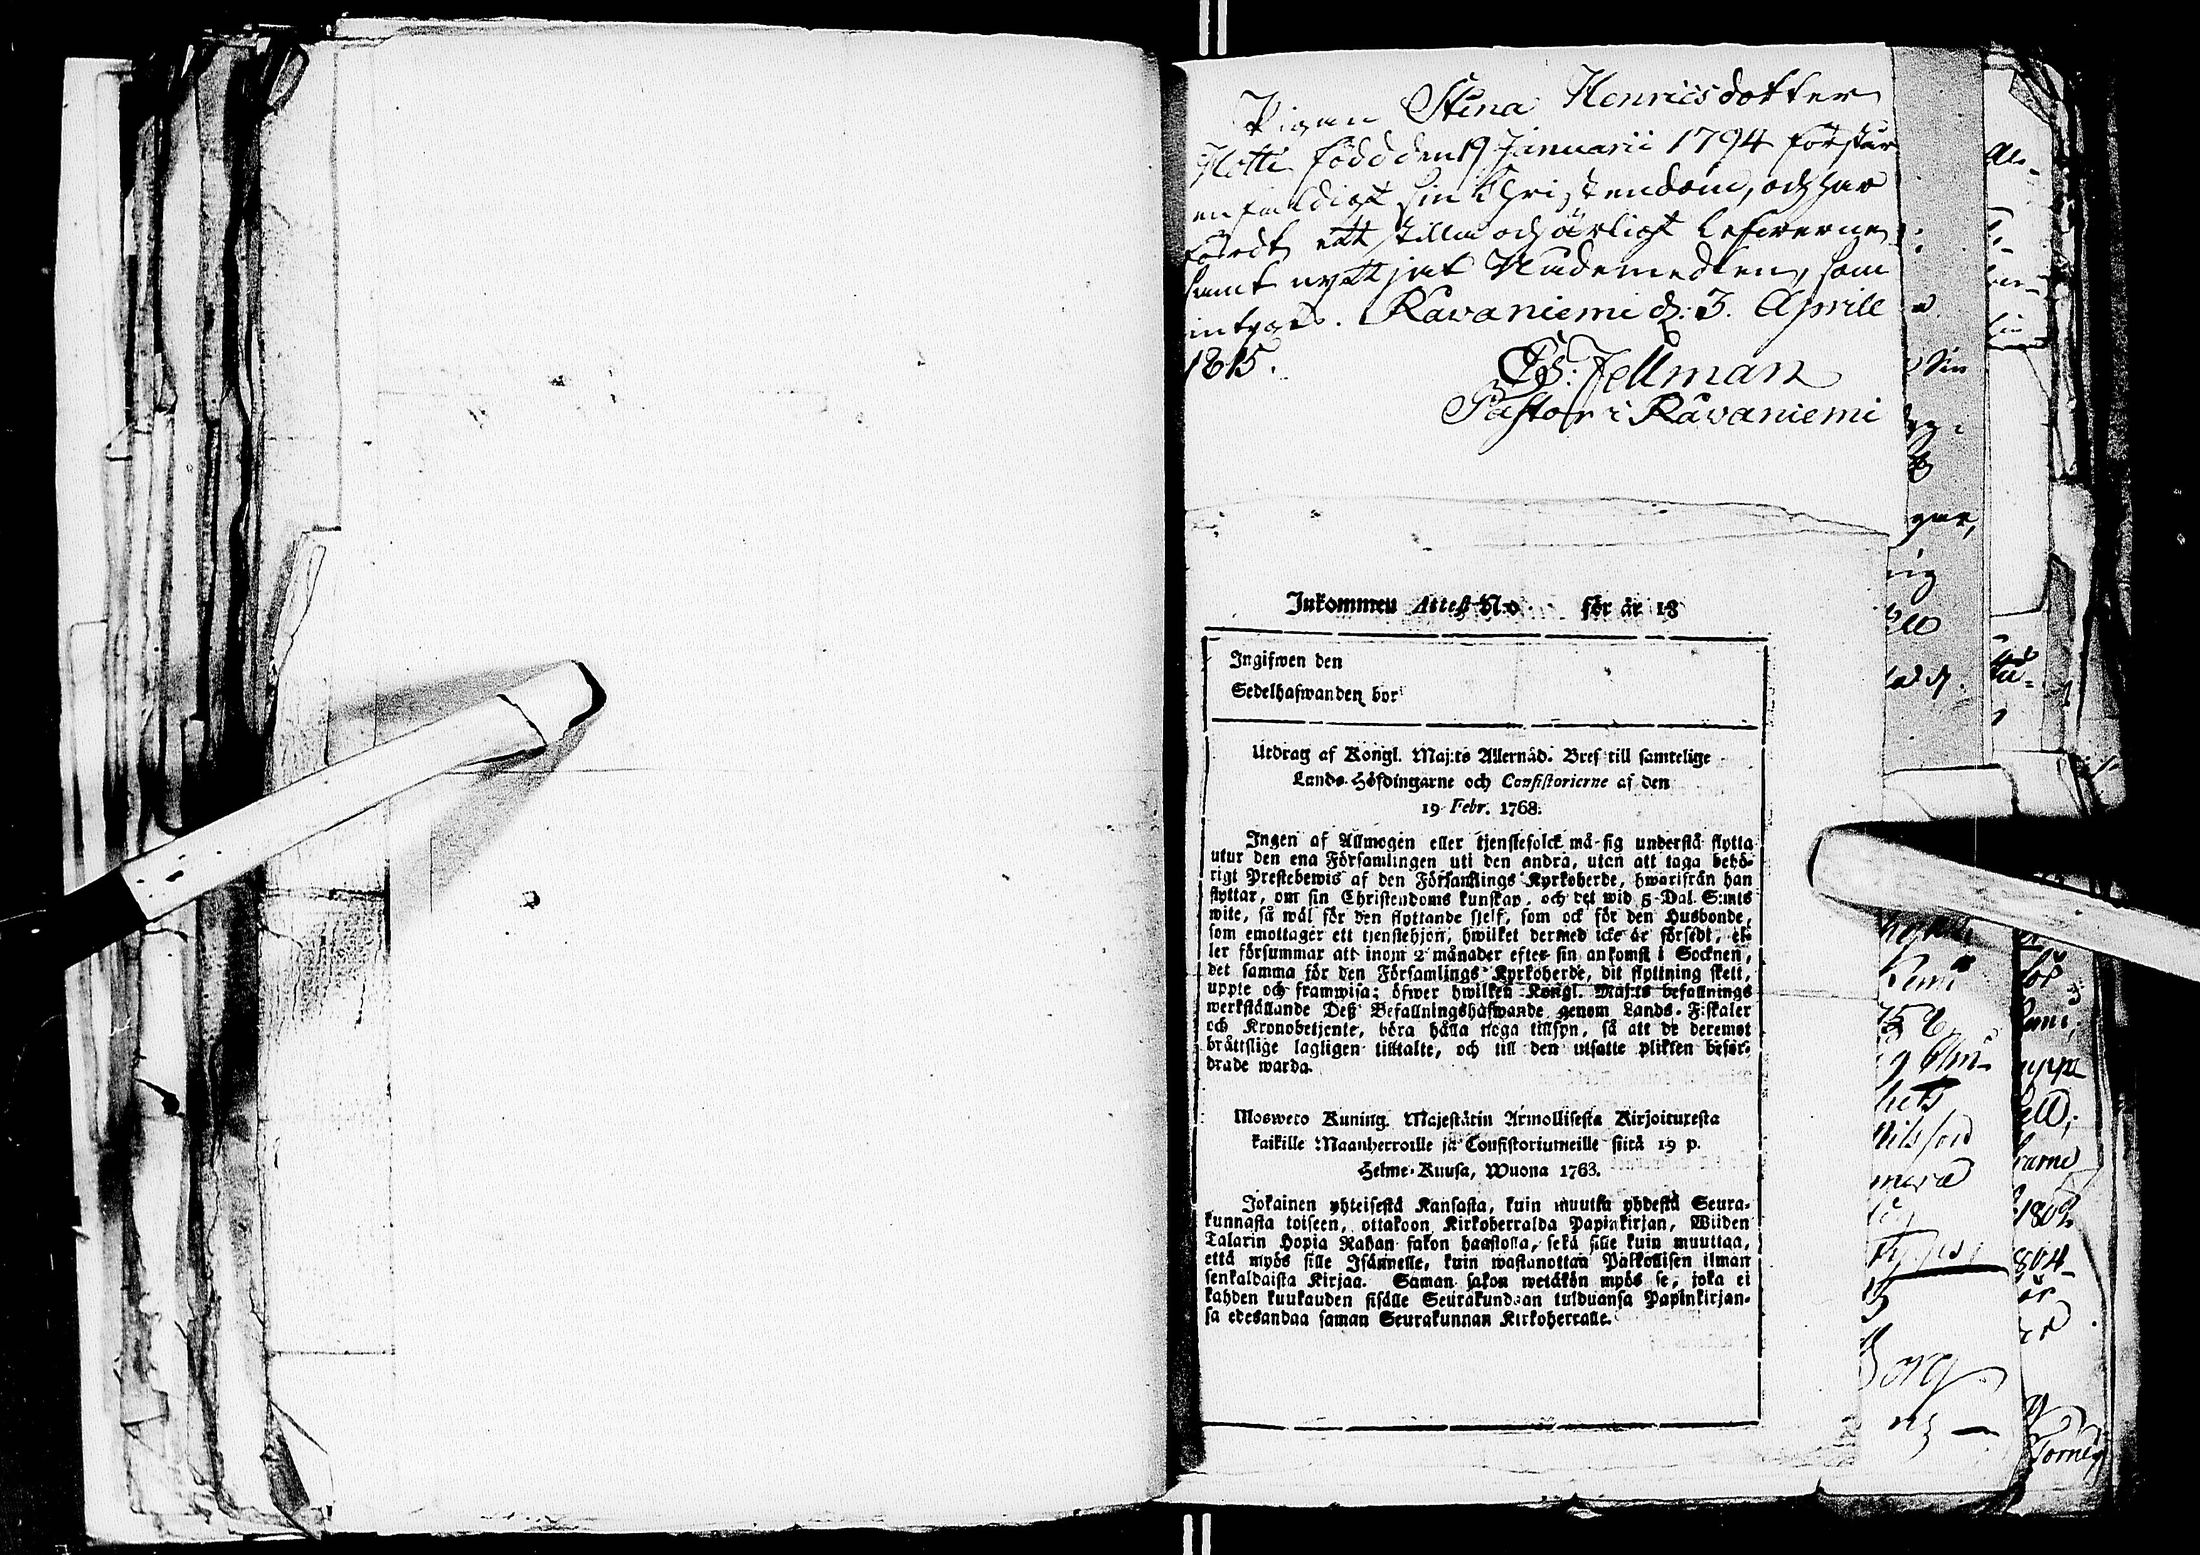 Pigan Stina Henricsdotter
Hotti född den 19 Januarii 1794 förstår
enfaldigt sin Christendom, och har
fördt ett stilla och ärligt lefwerne
samt nyttjat Nådemedlen, som
intygas. Råvaniemi d: 3. Aprill
1815.
Es: Fellman
Pastor i Råvaniemi
Inkommen Attest N:o för år 18
Ingifwen den
Sedelhafwanden bor
Utdrag af Kongl. Maj:ts Allernåd. Bref till samtelige
Lands-Höfdingarne och Consistorierne af den
19 Febr. 1768.
Ingen af Allmogen eller tjenstefolck må sig understå flytta
utur den ena Församlingen uti den andra, utan att taga behö-
rigt Prestebewis af den Församlings Kyrkoherde, hwarifrån han
flyttar, om sin Christendoms kunskap, och det wid 5 Dal. S:mts
wite, så wäl för den flyttande sjelf, som ock för den Husbonde,
som emottager ett tjenstehjon, hwilket dermed icke är försedt, el-
ler försummar att inom 2 månader efter sin ankomst i Socknen,
det samma för den Församlings Kyrkoherde, dit flyttning skett,
uppte och framwisa; öfwer hwilken Kongl. Maj:ts befallnings
werkställande Deß Befallningshafwande genom Lands-Fiskaler
och Kronobetjente, böra hålla noga tillsyn, så att de deremot
bråttslige lagligen tilltalte, och till den utsatte plikten beför-
drade warda.
Mosweto Kuning. Majestätin Armollisesta Kirjoituxesta
kaikille Maanherroille ja Consistoriumeille siitä 19 p.
Helme-Kuusa, Wuona 1763.
Jokainen yhteisestä Kansasta, kuin muutta yhdestä Seura-
kunnasta toiseen, ottakoon Kirkoherralda Papinkirjan, Wiiden
Talarin Hopia Rahan sakon haastolla, sekä sille kuin muuttaa,
että myös sille Isännelle, kuin wastanottaa Palkollisen ilman
senkaldaista Kirjaa. Saman sakon wetäkön myös se, joka ei
kahden kuukauden sisälle Seurakundaan tulduansa Papinkirjan-
sa edesandaa saman Seurakunnan Kirkoherralle.